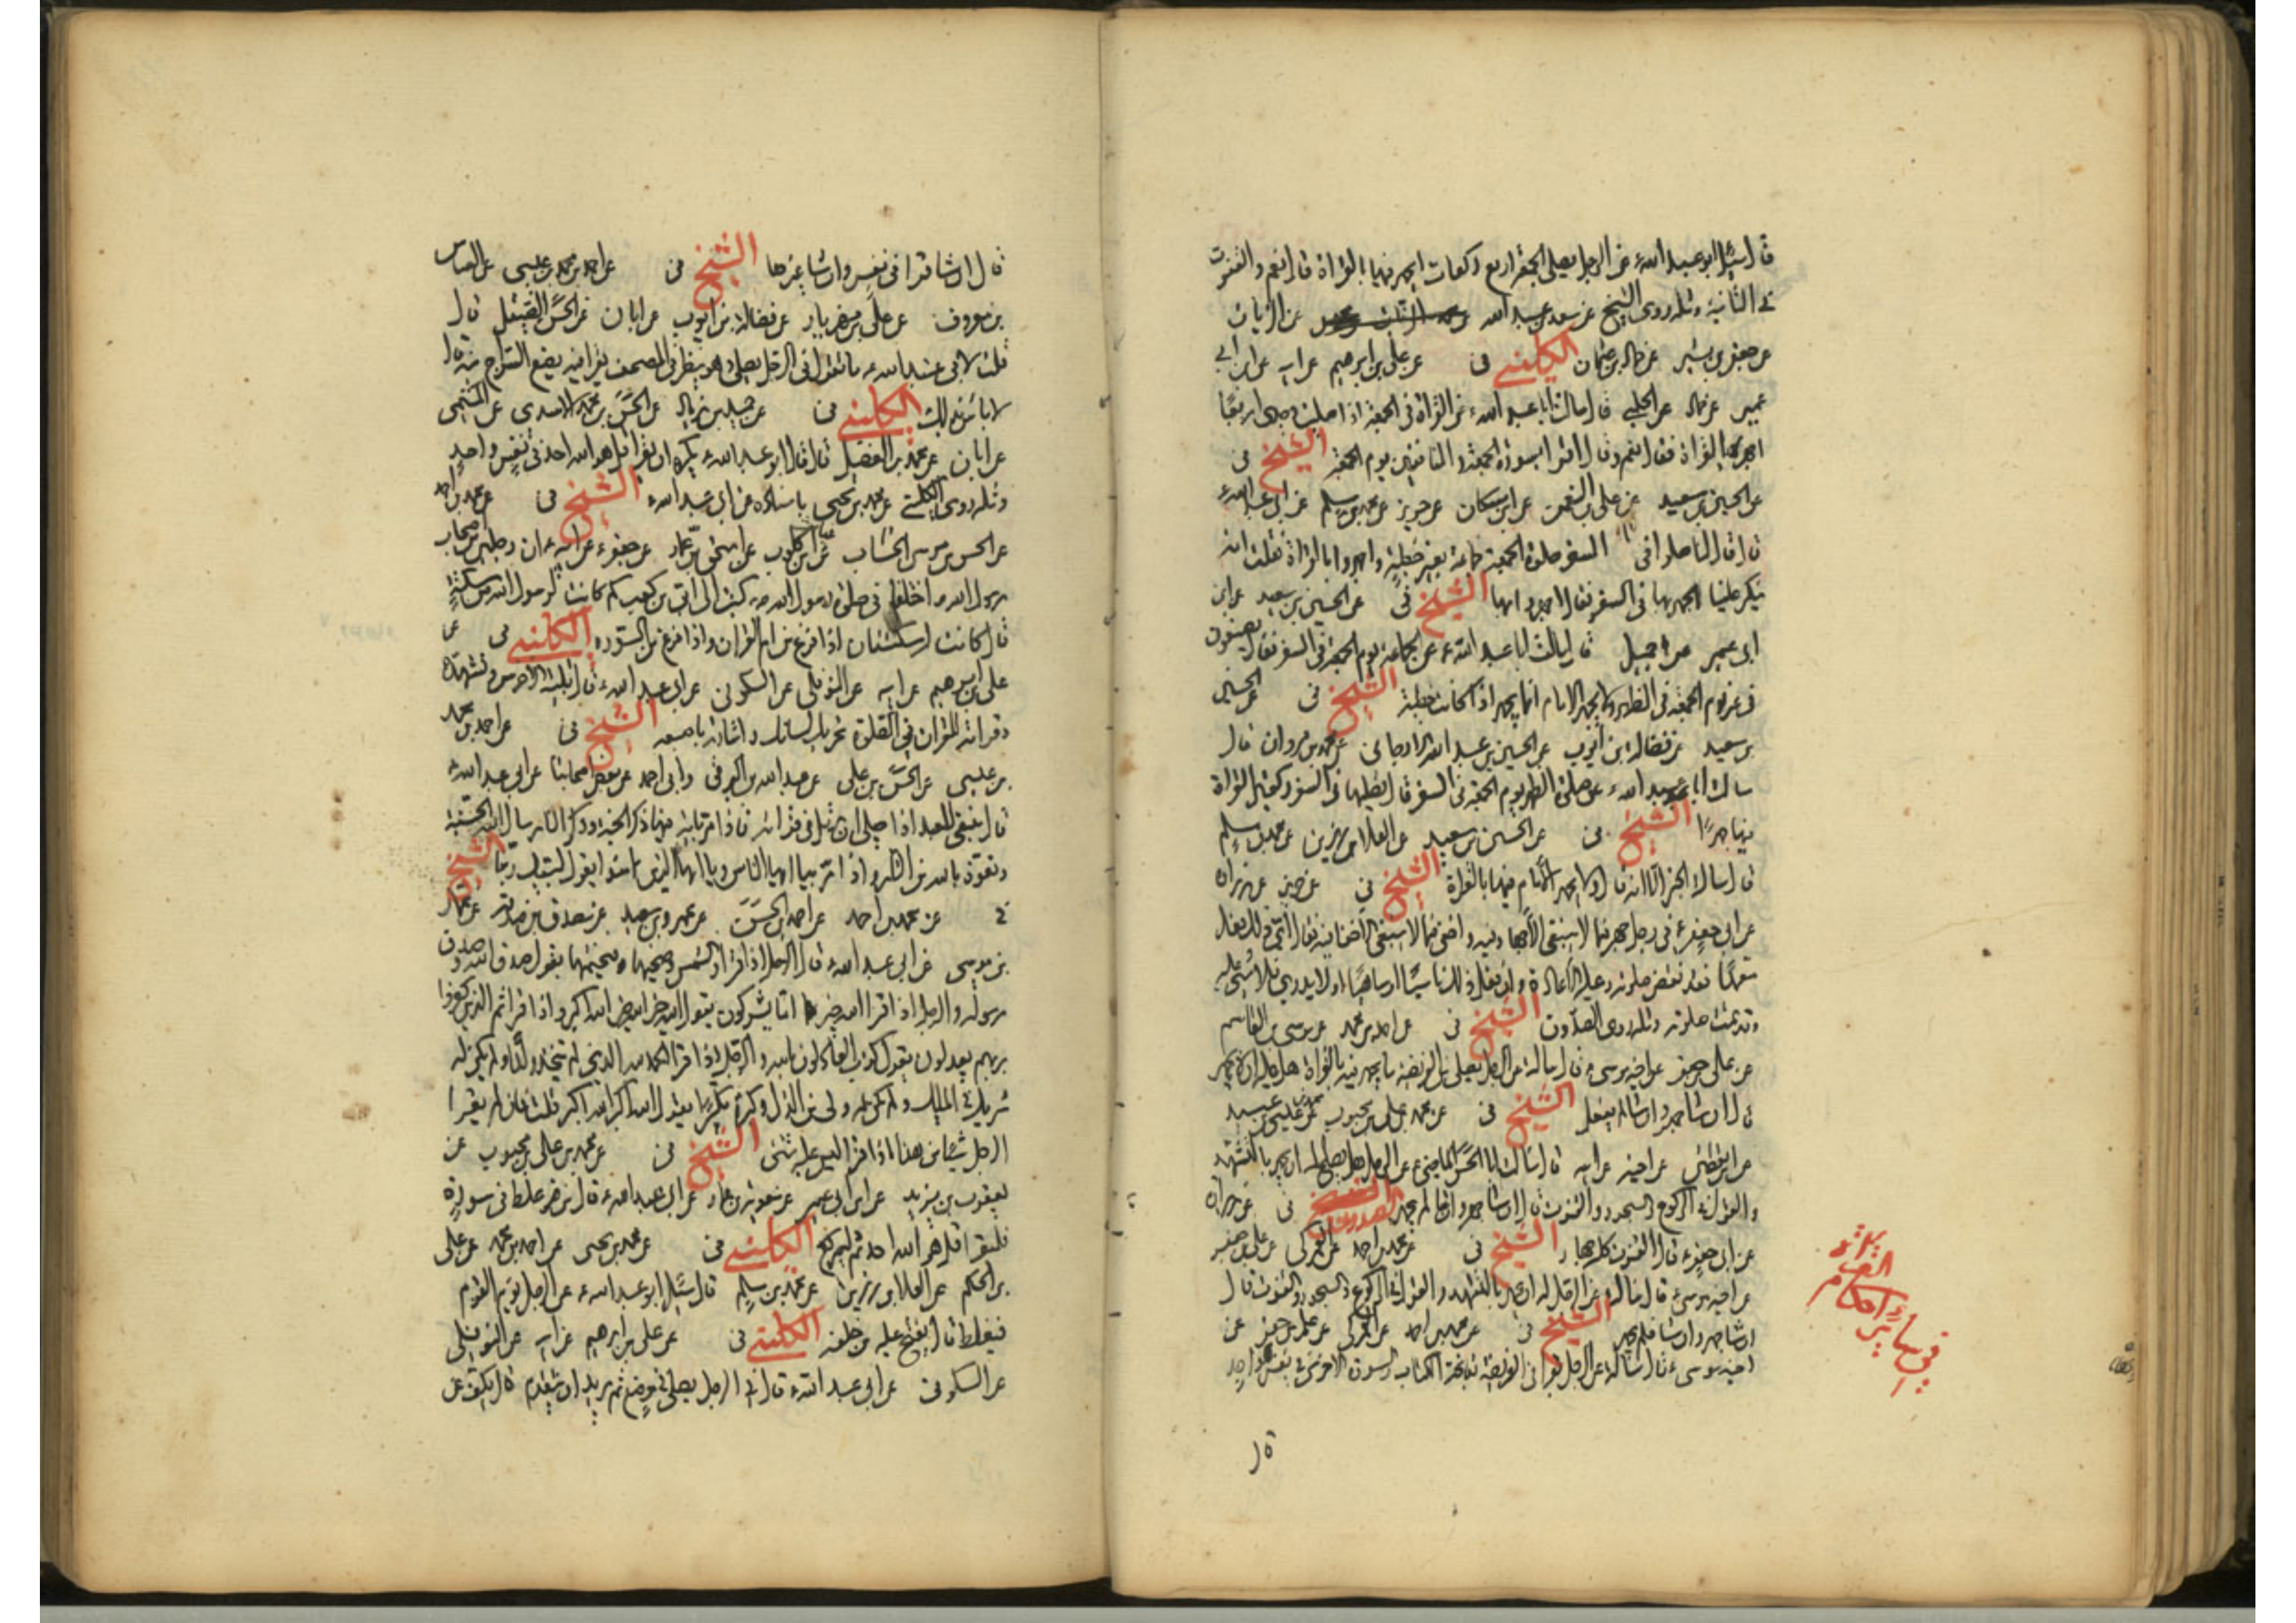 قال سئل ابو عبد الله ع عن الرجل يصلي الجمعة اربع ركعات ايجهر فيها بالقراة قال نعم والقنوت
في الثانية ومثله روى الشيخ عن سعد بن عبد الله عن الزيات
عن جعفر بن بشير عن حماد بن عثمان الكليني في عن علي بن ابرهيم عن ابيه عن ابن ابي
عمير عن حماد عن الحلبي قال سالت ابا عبد الله ع عن القراة في الجمعة اذا صليت وحدي اربعا
اجهر بالقراة فقال نعم وقال اقرا بسورة الجمعة والمنافقين يوم الجمعة الشيخ في
عن الحسين بن سعيد عن علي بن النعمن عن ابن مسكان عن حريز عن محمد بن مسلم عن ابي عبد الله ع
قال قال لنا صلوا في السفر صلوة الجمعة جماعة بغير خطبة واجهروا بالقراة فقلت انه
ينكر علينا الجهر بها في السفر فقال اجهروا بها الشيخ في عن الحسين بن سعيد عن ابن
ابي عمير عن جميل قال سالت ابا عبد الله ع عن الجماعة يوم الجمعة في السفر فقال يصنعون
في غير يوم الجمعة في الظهر ولا يجهر الامام انما يجهر اذا كانت خطبة الشيخ في عن الحسين
بن سعيد عن فضالة بن ايوب عن الحسين بن عبد الله الارجاني عن محمد بن مروان قال
سالت ابا عبد الله ع عن صلوة الظهر يوم الجمعة في السفر قال تصليها في السفر ركعتين القراة
فيها جهرا الشيخ في عن الحسين بن سعيد عن العلا بن رزين عن محمد بن مسلم
الامام فيها بالقراة الشيخ في عن حريز عن زرارة
عن ابي جعفر ع في رجل جهر فيما لا ينبغي الاجهار فيه واخفى فيما لا ينبغي الاخفا فيه فقال اي ذلك فعل
متعمدا فقد نقض صلوته وعليه الاعادة وان فعل ذلك ناسيا او ساهيا او لا يدري فلا شي عليه
وقد تمت صلوته ومثله روى الصدوق الشيخ في عن احمد بن محمد عن موسى بن القاسم
عن علي بن جعفر عن اخيه موسى ع قال سالته عن الرجل يصلي من الفريضة ما يجهر فيه بالقراة هل عليه ان لا يجهر
قال ان شا جهر وان شا لم يفعل الشيخ في عن محمد بن علي بن محبوب عن محمد بن عيسى بن عبيد
عن ابن يقطين عن اخيه عن ابيه قال سالت ابا الحسن الماضي ع عن الرجل هل يصلح له ان يجهر بالتشهد
والقول في الركوع والسجود والقنوت قال ان شا جهر وان شا لم يجهر الصدوق في عن زرارة
عن ابي جعفر ع قال القنوت كله جهار الشيخ في عن محمد بن احمد عن العمركي عن علي بن جعفر
عن اخيه موسى ع قال سالته عن الرجل له ان يجهر بالتشهد والقول في الركوع والسجود والقنوت قال
ان شا جهر وان شا لم يجهر الشيخ في عن محمد بن احمد عن العمركي عن علي بن جعفر عن
اخيه موسى ع قال سالته عن الرجل يقرا في الفريضة بفاتحة الكتاب وسورة اخرى في نفس واحد
قال
في ساير احكام القراة
قال ان شا قرا في نفس وان شا غيرها الشيخ في عن احمد بن محمد بن عيسى عن العباس
بن معروف عن علي بن مهزيار عن فضالة بن ايوب عن ابان عن الحسن الصيقل قال
قلت لابي عبد الله ع ما تقول في الرجل يصلي وهو ينظر في المصحف يقرا فيه يضع السراج قريبا منه قال
لا باس بذلك الكليني في عن حميد بن زياد عن الحسن بن محمد الاسدي عن الميثمي
عن ابان عن محمد بن الفضيل قال قال ابو عبد الله ع يكره ان يقرا قل هو الله احد في نفس واحد
ومثله روى الكليني عن محمد بن يحيى باسناده عن ابي عبد الله ع الشيخ في عن محمد بن احمد
عن الحسن بن موسى الخشاب عن ابن كلوب عن اسحق بن عمار عن جعفر ع عن ابيه ع ان رجلين من اصحاب
رسول الله ص اختلفا في صلوة رسول الله ص فكتب الى ابي بن كعب كم كانت لرسول الله ص من سكتة
قال كانت له سكتتان اذا فرغ من ام القران واذا فرغ من السورة الكليني في عن
علي بن ابرهيم عن ابيه عن النوفلي عن السكوني عن ابي عبد الله ع قال تلبية الاخرس وتشهده
وقراته للقران في الصلوة تحريك لسانه واشارته باصبعه الشيخ في عن احمد بن محمد
بن عيسى عن الحسن بن علي عن عبد الله البرقي وابي احمد عن بعض اصحابنا عن ابي عبد الله ع
قال ينبغي للعبد اذا صلى ان يرتل في قراته فاذا مر باية فيها ذكر الجنة وذكر النار سال الله الجنة
وتعوذ بالله من النار واذا مر بيا ايها الناس ويا ايها الذين امنوا يقول لبيك ربنا الشيخ
في عن محمد بن احمد عن احمد بن الحسن عن عمرو بن سعيد عن مصدق بن صدقة عن عمار
بن موسى عن ابي عبد الله ع قال الرجل اذا قرا والشمس وضحيها فيختمها يقول صدق الله وصدق
رسوله والرجل اذا قرا الله خير اما يشركون يقول الله خير الله خير الله اكبر واذا قرا ثم الذين كفروا
بربهم يعدلون يقول كذب العادلون بالله والرجل اذا قرا الحمد لله الذي لم يتخذ ولدا ولم يكن له
شريك في الملك ولم يكن له ولي من الذل وكبره تكبيرا يقول الله اكبر الله اكبر قلت فان لم يقرا
الرجل شيئا من هذا اذا قرا ليس عليه شي الشيخ في عن محمد بن علي بن محبوب عن
يعقوب بن يزيد عن ابن ابي عمير عن معوية بن عمار عن ابي عبد الله ع قال من غلط في سورة
فليقرا قل هو الله احد ثم ليركع الكليني في عن محمد بن يحيى عن احمد بن محمد عن علي
بن الحكم عن العلا بن رزين عن محمد بن مسلم قال سئل ابو عبد الله ع عن الرجل يوم القوم
فيغلط قال يفتح عليه من خلفه الكليني في عن علي بن ابرهيم عن ابيه عن النوفلي
عن السكوني عن ابي عبد الله ع قال في الرجل يصلي في موضع ثم يريد ان يتقدم قال يكف عن